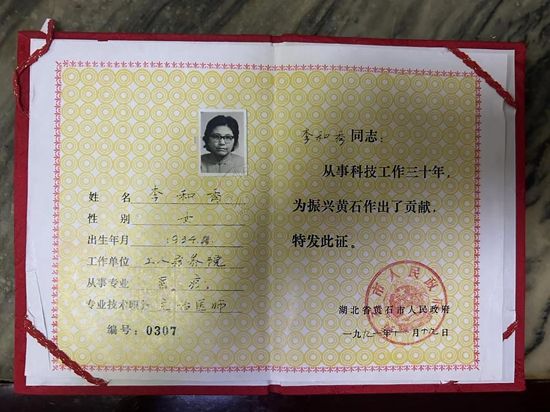 姓 名 李和秀
性 别 女
出生年月 1934.
工作单位 工人疗养院
从事专业 医疗
专业技术职务 主治医师
编号:0307
李和秀同志:
从事科技工作三十年,
为振兴黄石作出了贡献,
特发此证。
市人民政府
湖北省黄石市人民政府
一九九一年十一月十九日